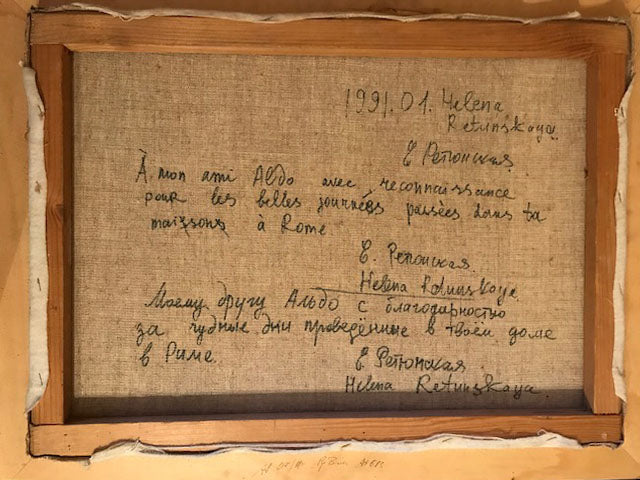 1991.01. Helena
Retunskaya
Е Ретюнская
À mon ami Aldo avec reconnaissance
pour les belles journées passées dans ta
maison à Rome
Е. Ретюнская
Helena Retunskaya
Моему другу Альдо с благодарностью
за чудные дни проведённые в твоём доме
в Риме
Е Ретюнская
Helena Retunskaya